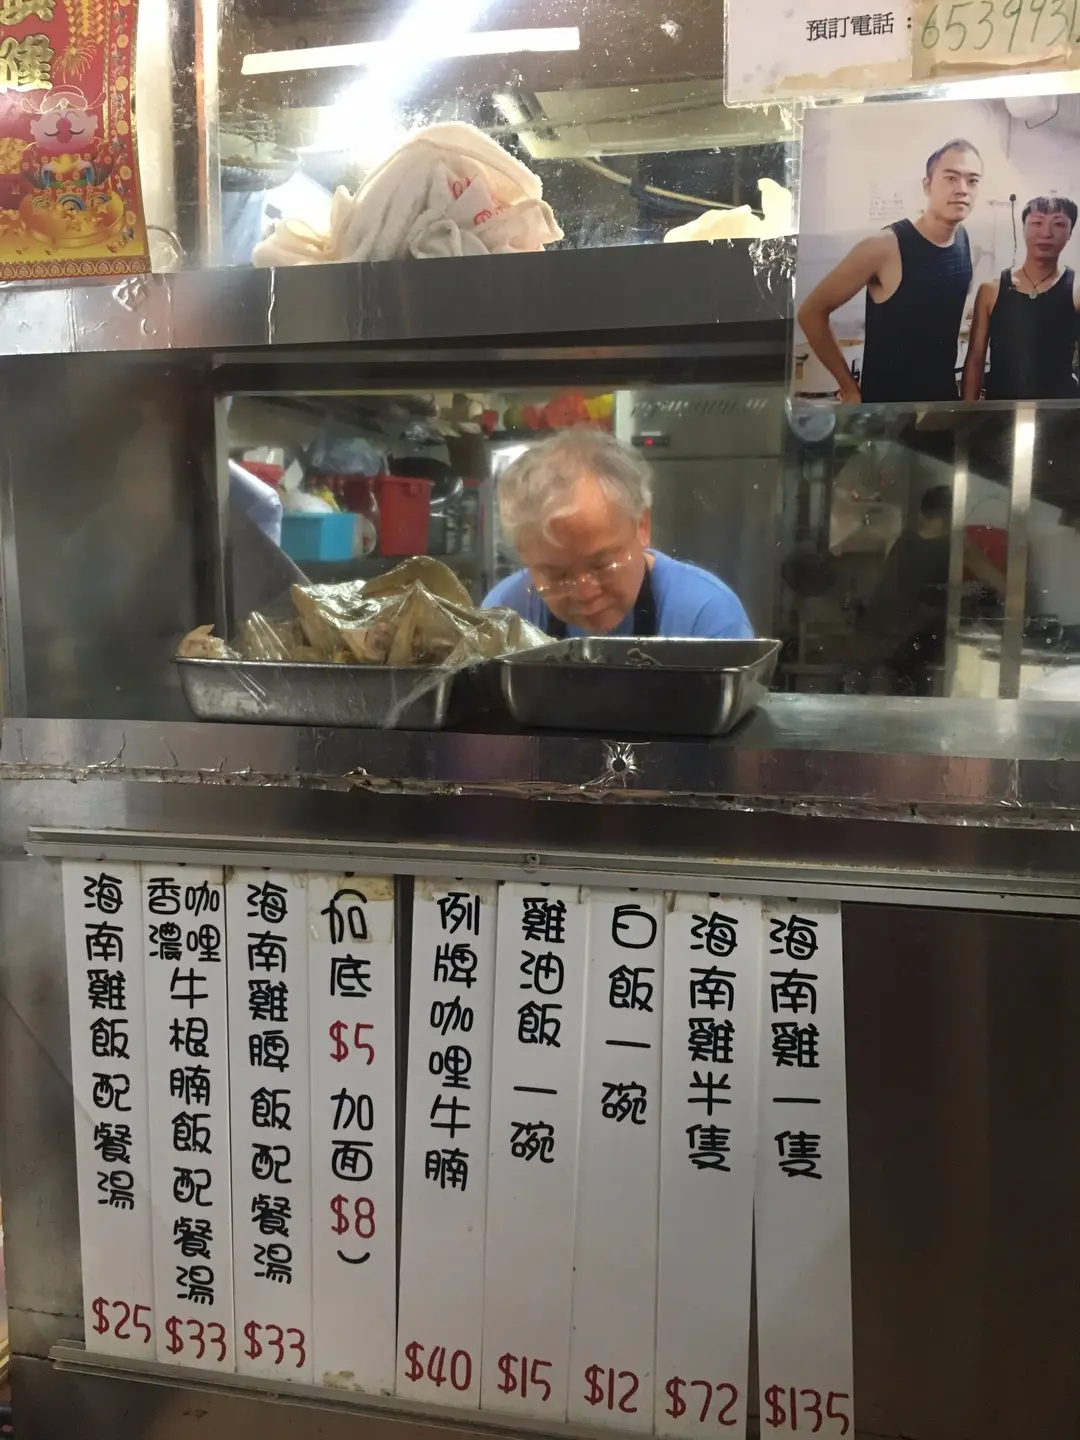 預訂電話：6539931
海南雞飯配餐湯 $25
香濃咖哩牛根腩飯配餐湯 $33
海南雞脾飯配餐湯 $33
(加底 $5 加面 $8)
例牌咖哩牛腩 $40
雞油飯一碗 $15
白飯一碗 $12
海南雞半隻 $72
海南雞一隻 $135